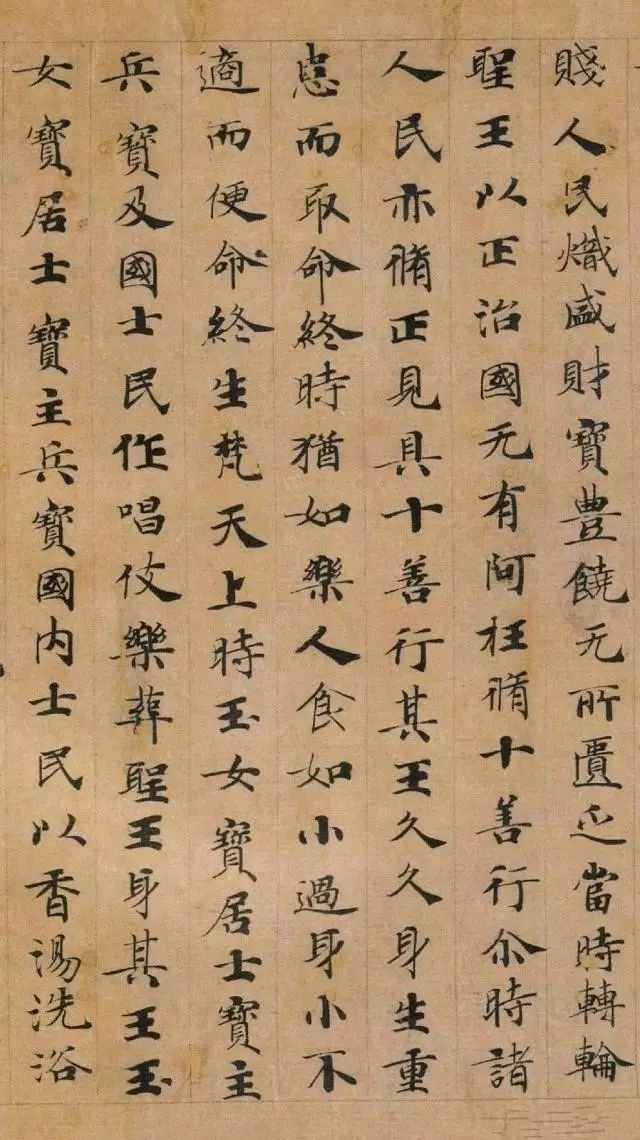 賤人民熾盛財寶豊饒无所匱乏當時轉輪
聖王以正治國无有阿枉脩十善行尒時諸
人民亦脩正見具十善行其王久久身生重
患而取命終時猶如樂人食如小過身小不
適而便命終生梵天上時玉女寶居士寶主
兵寶及國士民作唱伎樂葬聖王身其王玉
女寶居士寶主兵寶國内士民以香湯洗浴